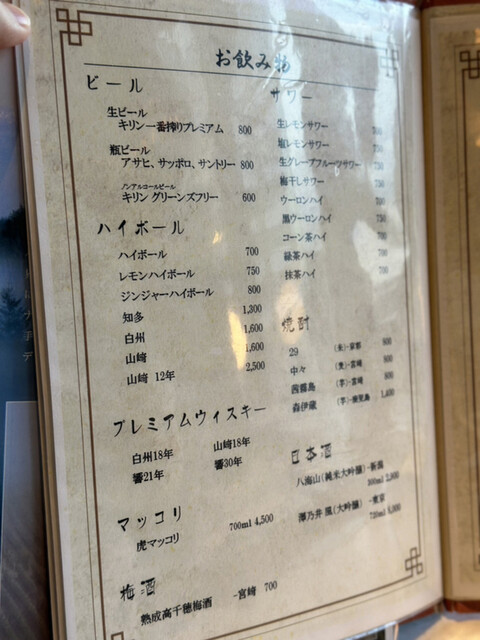 お飲み物
ビール
生ビール
キリン一番搾りプレミアム 800
瓶ビール
アサヒ、サッポロ、サントリー 800
ノンアルコールビール
キリン グリーンズフリー 600
ハイボール
ハイボール 700
レモンハイボール 750
ジンジャーハイボール 800
知多 1,300
白州 1,600
山崎 1,600
山崎 12年 2,500
プレミアムウィスキー
白州18年 山崎18年
響21年 響30年
マッコリ
虎マッコリ 700ml 4,500
梅酒
熟成高千穂梅酒 -宮崎 700
サワー
生レモンサワー
塩レモンサワー 750
生グレープフルーツサワー 750
梅干しサワー 750
ウーロンハイ 750
黒ウーロンハイ 750
コーン茶ハイ 750
緑茶ハイ 750
抹茶ハイ 750
焼酎
29 (麦)-京都 800
中々 (麦)-宮崎 800
茜霧島 (芋)-宮崎 800
森伊蔵 (芋)-鹿児島 1,400
日本酒
八海山(純米大吟醸)-新潟
300ml 2,800
澤乃井 凰(大吟醸) -東京
720ml 8,000